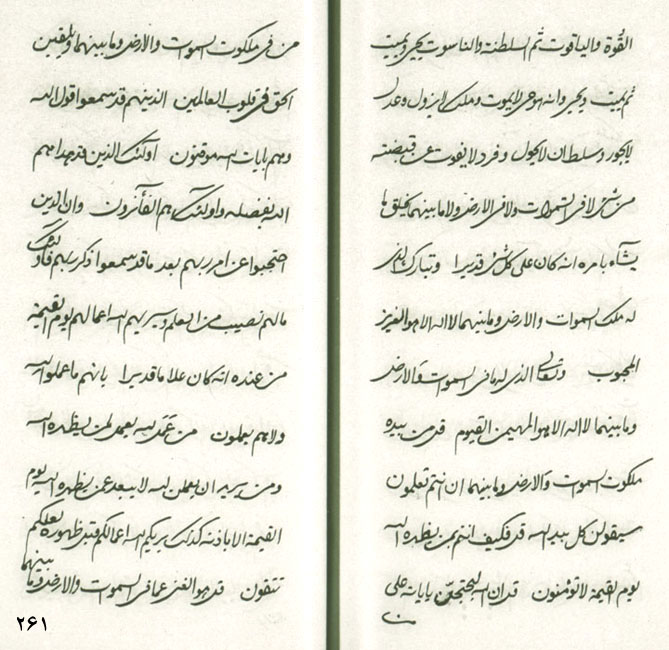 القوة والیاقوت ثم السلطنة والناسوت یحیی ویمیت
ثم یمیت ویحیی وانه هو حی لایموت وملک لایزول وعدل
لایجور وسلطان لایحول وفرد لایفوت عن قبضته
من شیٔ لا فی السموات ولا فی الارض ولا ما بینهما یخلق ما
یشآء بامره انه کان علی کل شیٔ قدیرا وتبارک الذی
له ملک السموات والارض وما بینهما لا اله الا هو العزیز
المحبوب وتعالی الذی له ما فی السموات والارض
وما بینهما لا اله الا هو المهیمن القیوم قل من بیده
ملکوت السموات والارض وما بینهما ان انتم تعلمون
سیقولن کل بید الله قل فکیف انتم بمن یظهره الله
یوم القیمة لاتومنون قل ان الله بآیاته علی
من فی ملکوت السموات والارض وما بینهما ویلقین
الحق فی قلوب العالمین الذینهم قد سمعوا قول الله
وهم بایات الله موقنون اولئک الذین قد هداهم
الله بفضله واولئک هم الفآئزون وان الذین
احتجبوا عن امر ربهم بعد ما قد سمعوا ذکر ربهم فاولئک
مالهم نصیب من العلم وسیریهم الله اعمالهم یوم القیمة
من عنده انه کان علاما قدیرا بانهم ما عملوا لله
ولا هم یعملون من عمل لله یعمل لمن یظهره الله
ومن یرید ان یعملن لله لا یبعد عن یظهره الله یوم
القیمة الا باذنه کذلک یریکم الله اعمالکم قبل ظهوره لعلکم
تتقون قل هو الغنی عما فی السموات والارض وما بینهما
۲۶۱